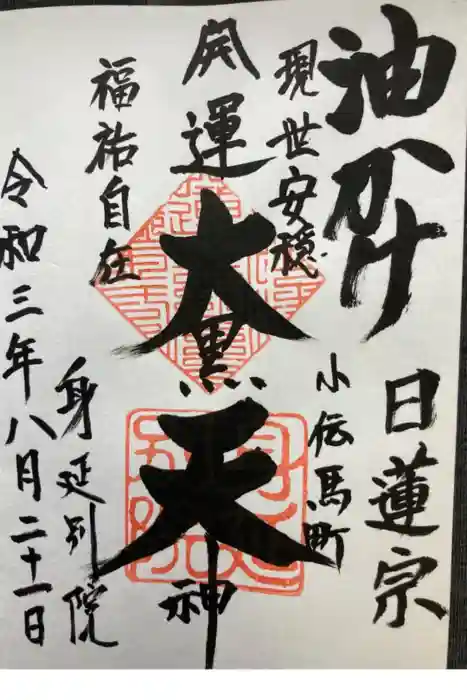 油かけ
日蓮宗
現世安穏
小伝馬町
開運
大黒天神
福祐自在
身延別院
令和三年八月二十一日